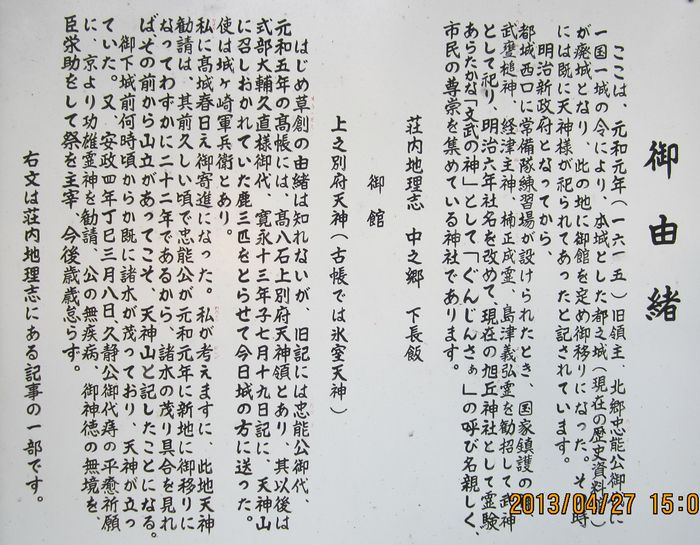 御由緒
ここは、元和元年（一六一五）旧領主、北郷忠能公御
が廃城となり、此の地に御館を定め御移りになった。そ
一国一城の令により、本城とした都之城（現在の歴史資料
には既に天神様が祀られてあったと記されています。
明治新政府となってから、
都城西口に常備隊練習場が設けられたとき、国家鎮護の
武甕槌神、経津主神、楠正成霊、島津義弘霊を勧招して武神
として祀り、明治六年社名を改めて、現在の旭丘神社として霊験
あらたかな「文武の神」として「ぐんじんさぁ」の呼び名親しく、
市民の尊崇を集めている神社であります。
荘内地理志 中之郷 下長飯
御館
上之別府天神（古帳では氷室天神）
はじめ草創の由緒は知れないが、旧記には忠能公御代、
元和五年の髙帳には、髙八石上別府天神領とあり、其以後は
式部大輔久直様御代、寛永十三年子七月十九日記に、天神山
に召しおかれていた鹿三匹をとらせて今日城の方に送った。
使は城ヶ崎軍兵衛とあり。
私に髙城春日え御寄進になった。私が考えますに、此地天神
勧請は、其前久しい頃で忠能公が元和元年に新地に御移りに
なってわずかに二十二年であるから、諸木の茂り具合を見れ
ばその前から山立があってこそ、天神山と記したことになる。
御下城前何時頃からか既に諸木が茂っており、天神が立っ
ていた。又、安政四年丁巳三月八日久静公御代痔の平癒祈願
に、京より功雄霊神を勧請、公の無疾病、御神徳の無境を、
臣栄助をして祭を主宰、今後歳歳怠らず。
右文は荘内地理志にある記事の一部です。
2013/04/27 15:0